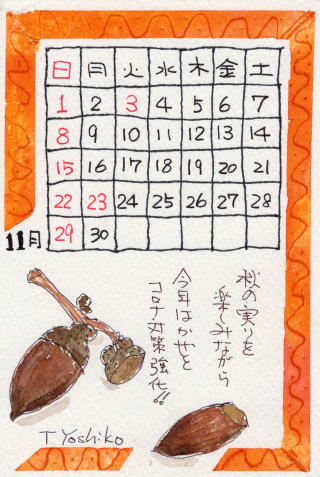 日 月 火 水 木 金 土
1 2 3 4 5 6 7
8 9 10 11 12 13 14
15 16 17 18 19 20 21
22 23 24 25 26 27 28
29 30
11月
秋の実りを
楽しみながら
今年はかぜと
コロナ対策強化!!
T Yoshiko